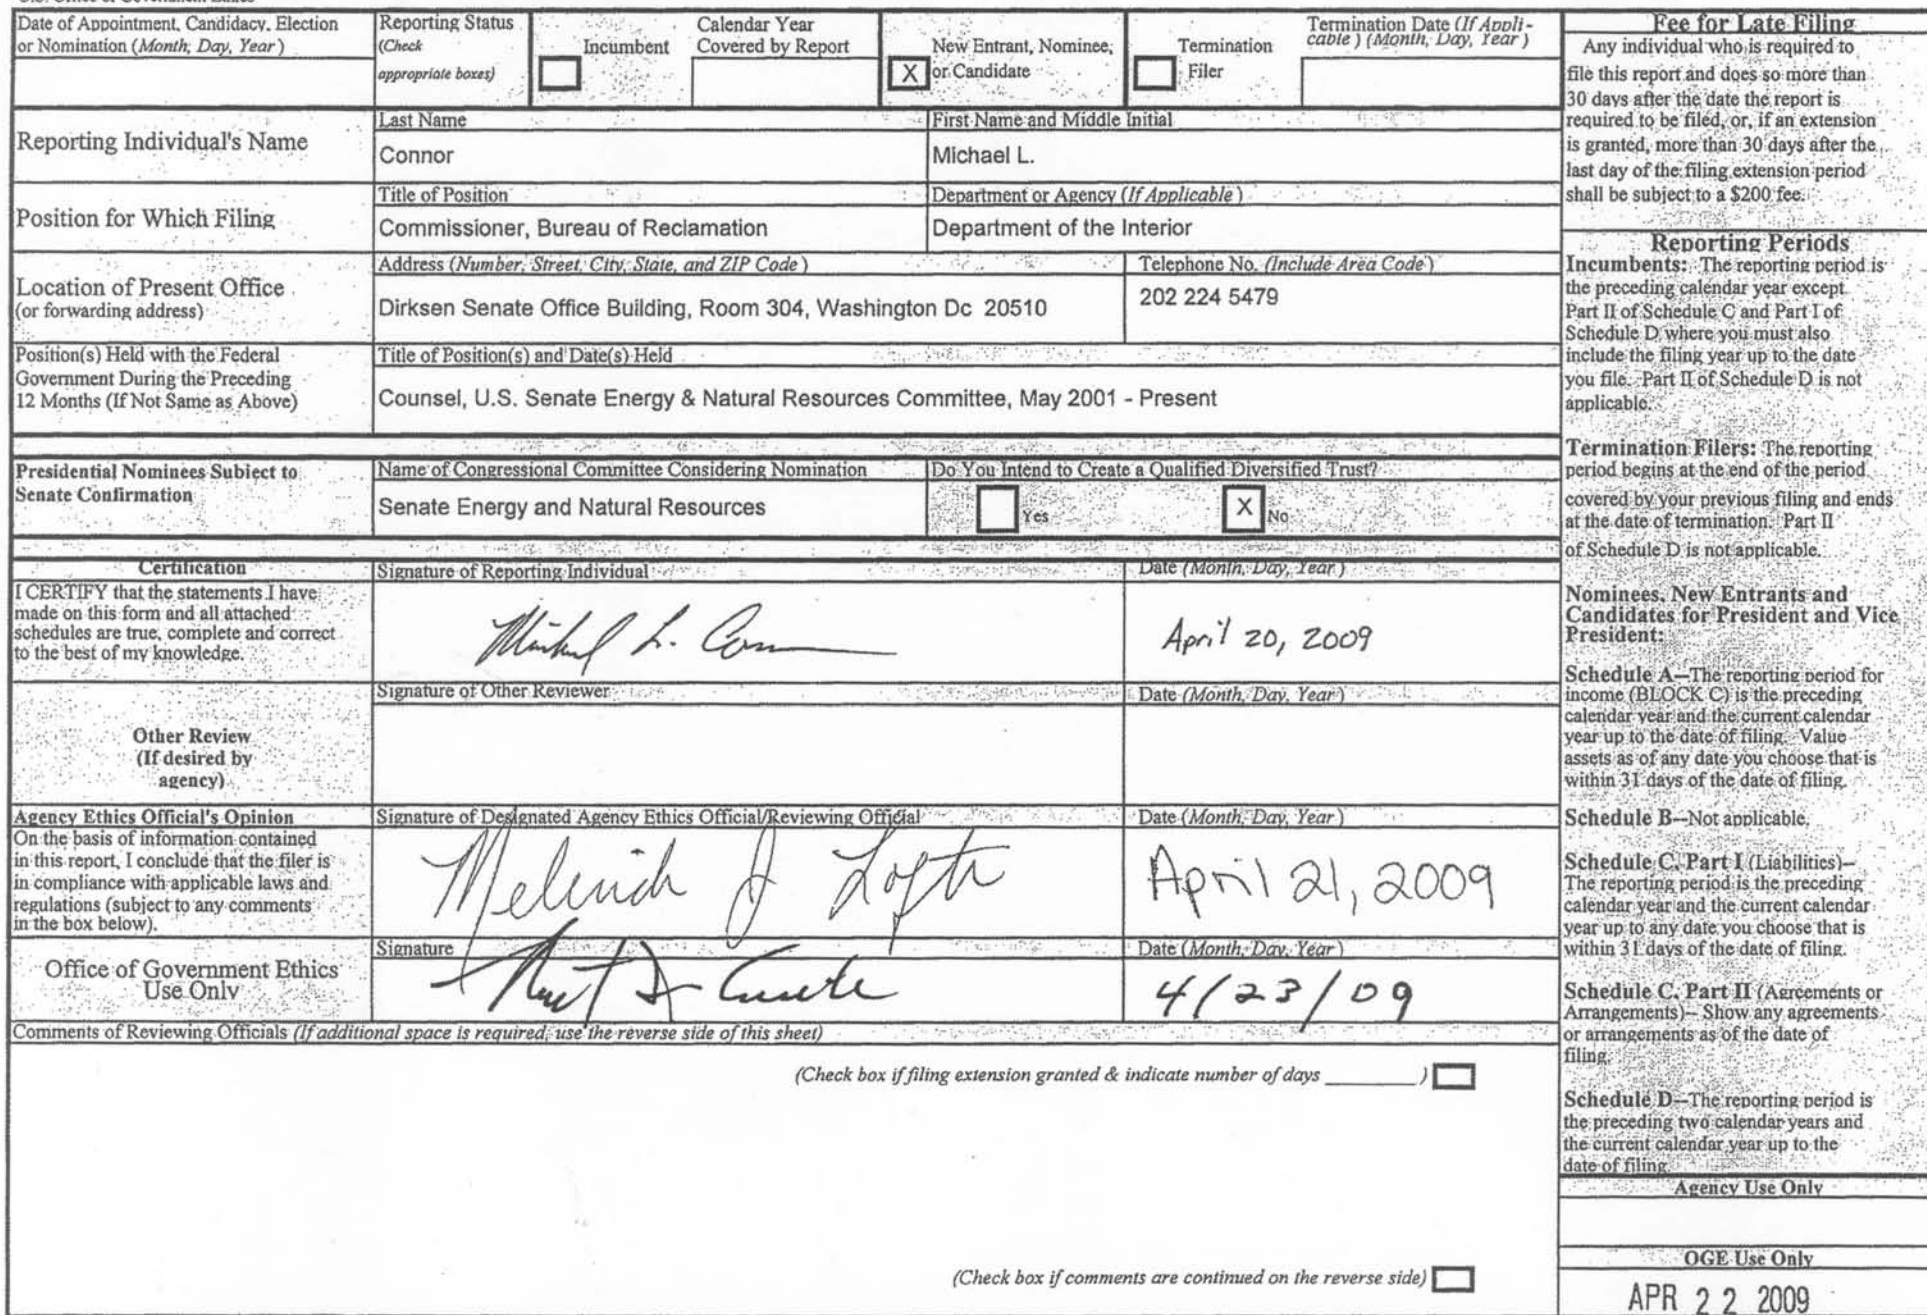 Date of Appointment, Candidacy, Election
or Nomination (Month, Day, Year)
Reporting Status
(Check
appropriate boxes)
Incumbent
Calendar Year
Covered by Report
X
New Entrant, Nominee,
or Candidate
Termination
Filer
Termination Date (If Appli-
cable) (Month, Day, Year)
Reporting Individual's Name
Last Name
Connor
First Name and Middle Initial
Michael L.
Position for Which Filing
Title of Position
Commissioner, Bureau of Reclamation
Department or Agency (If Applicable)
Department of the Interior
Location of Present Office
(or forwarding address)
Address (Number, Street, City, State, and ZIP Code)
Dirksen Senate Office Building, Room 304, Washington Dc 20510
Telephone No. (Include Area Code)
202 224 5479
Position(s) Held with the Federal
Government During the Preceding
12 Months (If Not Same as Above)
Title of Position(s) and Date(s) Held
Counsel, U.S. Senate Energy & Natural Resources Committee, May 2001 - Present
Presidential Nominees Subject to
Senate Confirmation
Name of Congressional Committee Considering Nomination
Senate Energy and Natural Resources
Do You Intend to Create a Qualified Diversified Trust?
Yes
X No
Certification
I CERTIFY that the statements I have
made on this form and all attached
schedules are true, complete and correct
to the best of my knowledge.
Signature of Reporting Individual
Date (Month, Day, Year)
April 20, 2009
Other Review
(If desired by
agency)
Signature of Other Reviewer
Date (Month, Day, Year)
Agency Ethics Official's Opinion
On the basis of information contained
in this report, I conclude that the filer is
in compliance with applicable laws and
regulations (subject to any comments
in the box below).
Signature of Designated Agency Ethics Official/Reviewing Official
Date (Month, Day, Year)
April 21, 2009
Office of Government Ethics
Use Only
Signature
Date (Month, Day, Year)
4/23/09
Comments of Reviewing Officials (If additional space is required, use the reverse side of this sheet)
(Check box if filing extension granted & indicate number of days ________)
(Check box if comments are continued on the reverse side)
Fee for Late Filing
Any individual who is required to
file this report and does so more than
30 days after the date the report is
required to be filed, or, if an extension
is granted, more than 30 days after the
last day of the filing extension period
shall be subject to a $200 fee.
Reporting Periods
Incumbents: The reporting period is
the preceding calendar year except
Part II of Schedule C and Part I of
Schedule D where you must also
include the filing year up to the date
you file. Part II of Schedule D is not
applicable.
Termination Filers: The reporting
period begins at the end of the period
covered by your previous filing and ends
at the date of termination. Part II
of Schedule D is not applicable.
Nominees, New Entrants and
Candidates for President and Vice
President:
Schedule A--The reporting period for
income (BLOCK C) is the preceding
calendar year and the current calendar
year up to the date of filing. Value
assets as of any date you choose that is
within 31 days of the date of filing.
Schedule B--Not applicable.
Schedule C, Part I (Liabilities)--
The reporting period is the preceding
calendar year and the current calendar
year up to any date you choose that is
within 31 days of the date of filing.
Schedule C, Part II (Agreements or
Arrangements)-- Show any agreements
or arrangements as of the date of
filing.
Schedule D--The reporting period is
the preceding two calendar years and
the current calendar year up to the
date of filing.
Agency Use Only
OGE Use Only
APR 22 2009